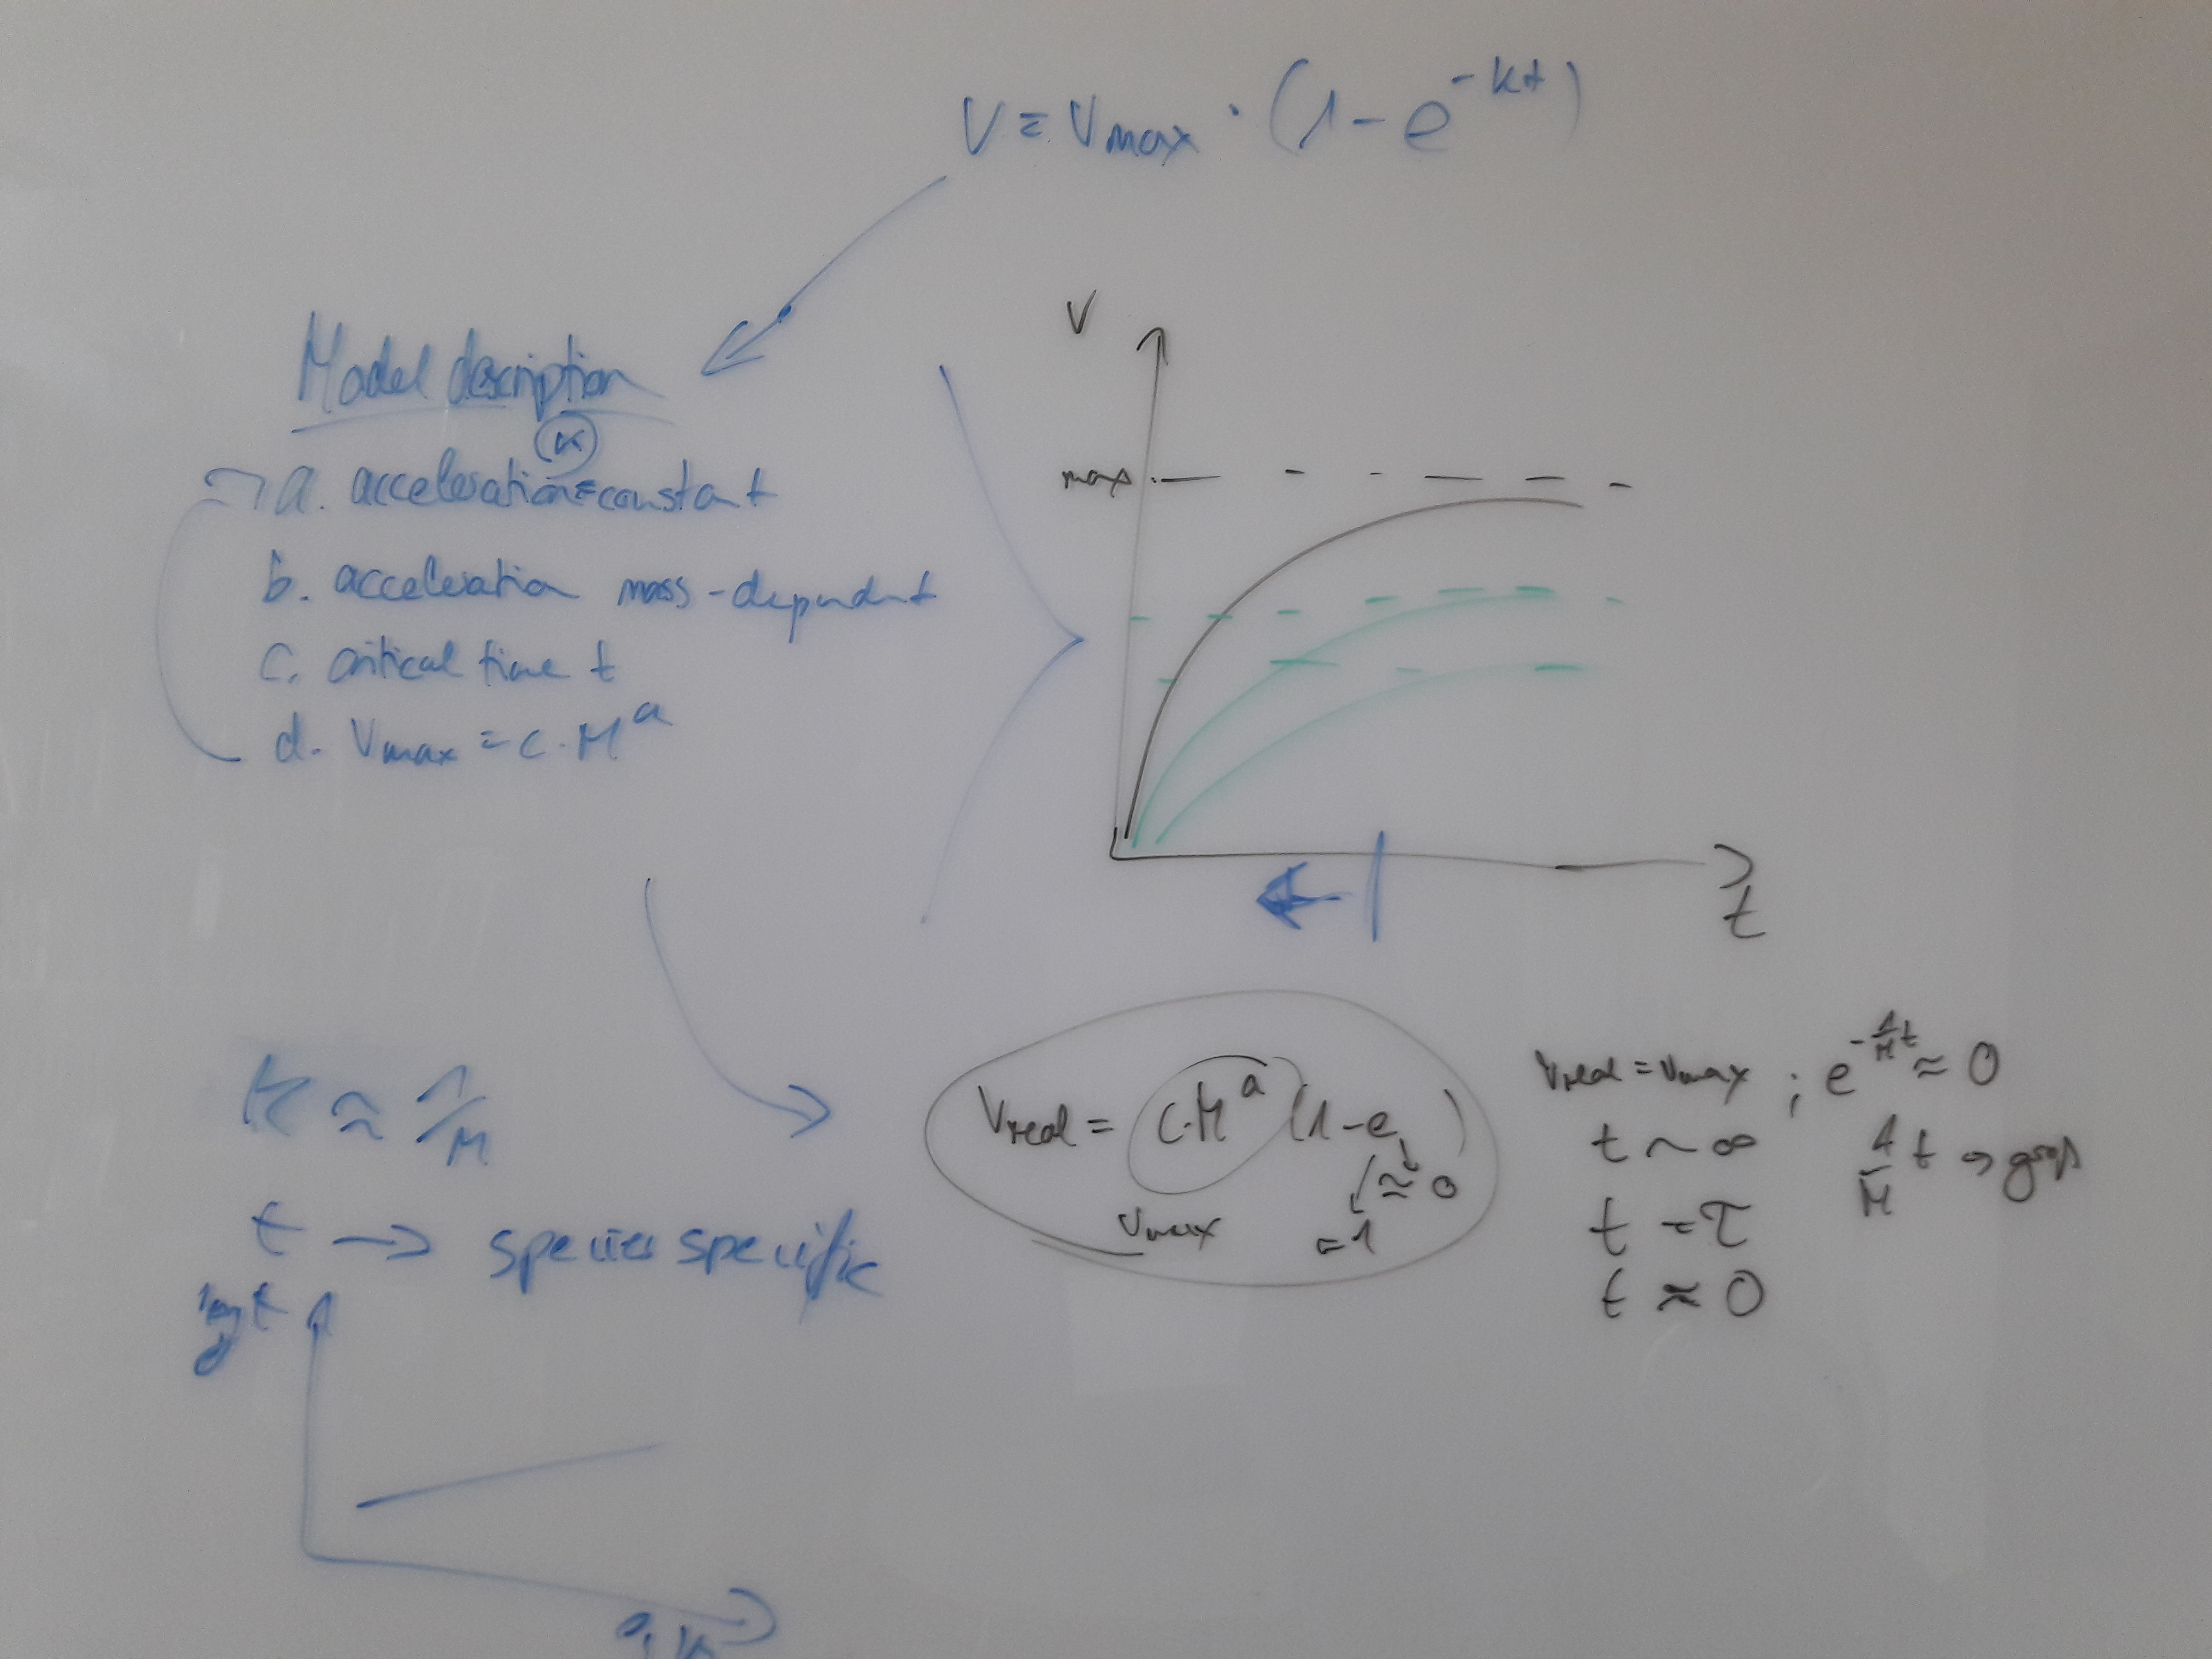 V = Vmax · (1 - e^-kt)
Model description
k
a. acceleration = constant
b. acceleration mass-dependent
c. critical time t
d. Vmax = c · M^a
V
max
t
k ≈ 1/M
t → species specific
log t
Vreal = c·M^a (1-e )
≈ 0
Vmax
= 1
Vreal = Vmax ; e^-1/M t ≈ 0
t ~ ∞
1/M t → groß
t = τ
t ≈ 0